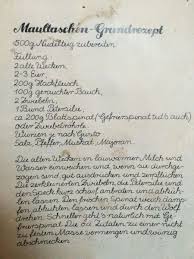 Maultaschen-Grundrezept
500g Nudelteig zubereiten
Füllung
2 alte Wecken
2-3 Eier
200g Hackfleisch
100g gerauchter Bauch
2 Zwiebeln
1 Bund Petersilie
ca 200g Blattspinat (Gefrierspinat tuts auch)
oder Zwiebelrohr
Würzen je nach Gusto
Salz, Pfeffer, Muskat, Majoran
Die alten Wecken in lauwarmer Milch und
Wasser einweichen und, wenn sie durchge
zogen sind gut ausdrücken und
Die Zwiebeln, den Petersilie und
den Speck kurz scharf und abkühl
en lassen. Den frischen Spinat weich dämp
fen abkühlen lassen und durch den Wolf
drehen. Schneller geht's natürlich mit Ge
frierspinat. Die Zutaten zu einer nicht
zu festen Masse vermengen und würzig
abschmecken